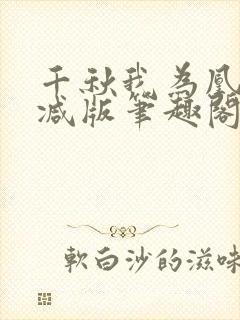 千秋我为凰
减版笔趣阁
軟白沙的滋味